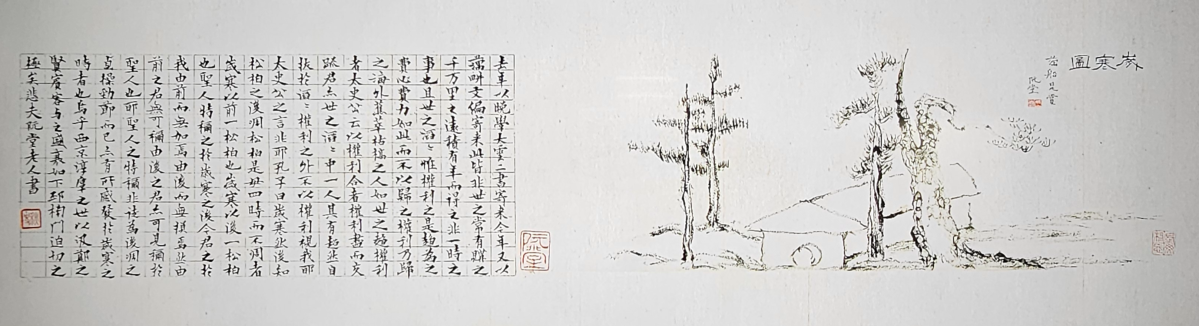 歲寒圖
藕船是賞
阮堂
去年以晚學大雲二書寄來今年又以
藕畊文編寄來此皆非世之常有購之
千万里之遠積有年而得之非一時之
事也且世之滔〻惟權利之是趨爲之
費心費力如此而不以歸之權利乃歸
之海外蕉萃枯槁之人如世之趨權利
者太史公云以權利合者權利盡而交
踈君亦世之滔〻中一人其有超然自
拔於滔〻權利之外不以權利視我耶
太史公之言非耶孔子曰歲寒然後知
松柏之後凋松柏是毋四時而不凋者
歲寒以前一松柏也歲寒以後一松柏
也聖人特稱之於歲寒之後今君之於
我由前而無加焉由後而無損焉然由
前之君無可稱由後之君亦可見稱於
聖人也耶聖人之特稱非徒爲後凋之
貞操勁節而已亦有所感發於歲寒之
時者也烏乎西京淳厚之世以汲鄭之
賢賓客與之盛衰如下邳榜門迫切之
極矣悲夫阮堂老人書
阮堂